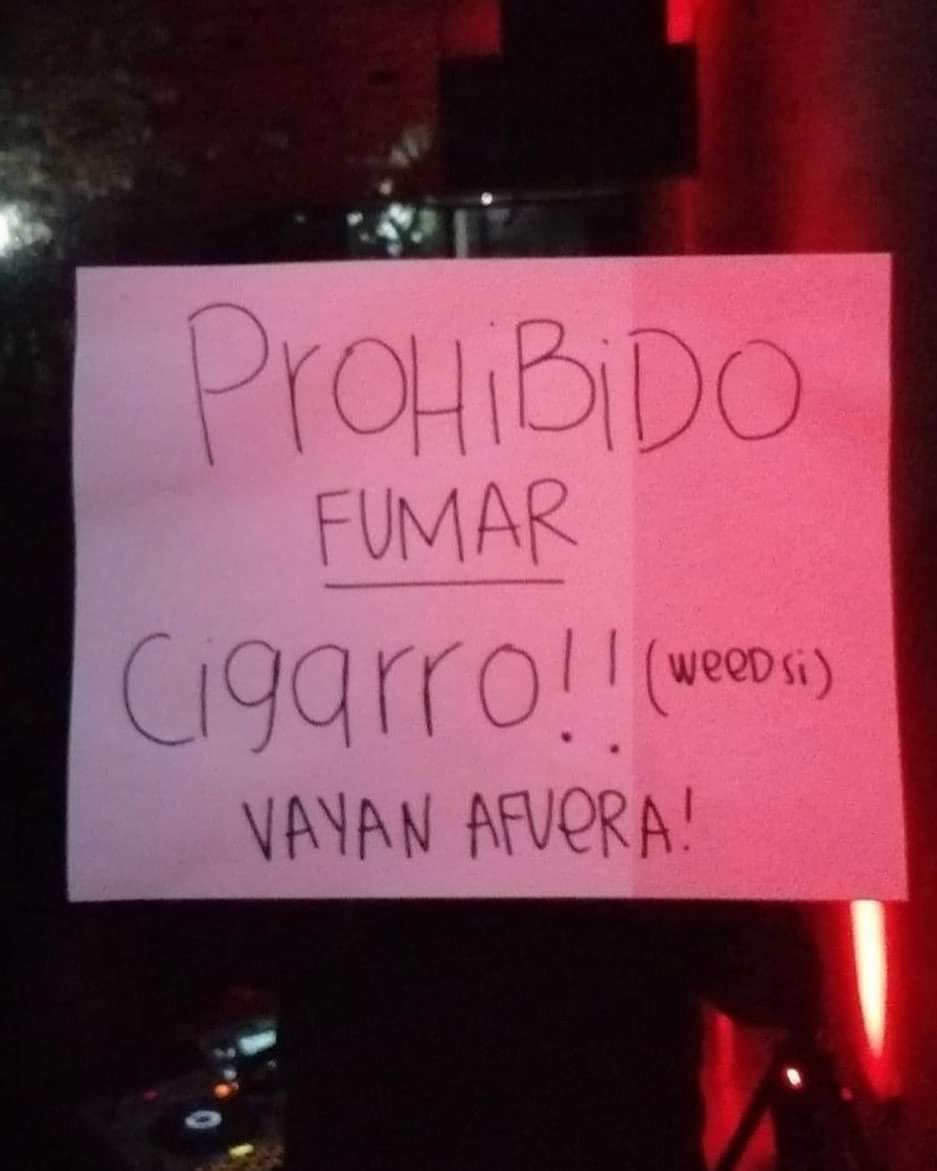 PROHiBiDO
FUMAR
Cigarro!! (weeD si)
VAYAN AFUeRA!